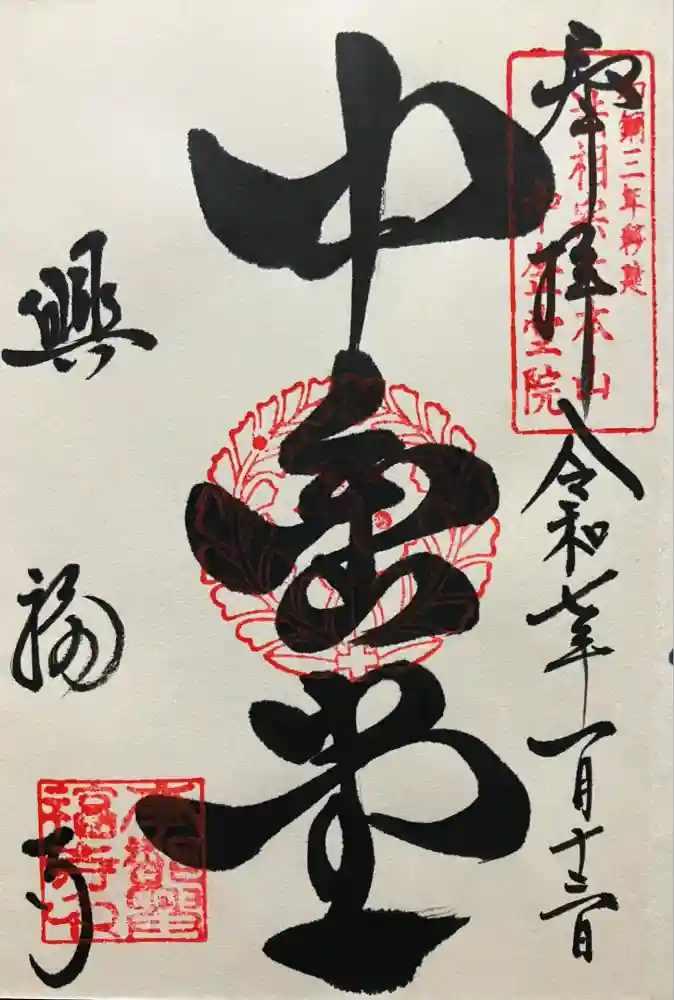 奉拝
令和七年一月十三日
和銅三年移建
法相宗大本山
中金堂院
中金堂
興福寺